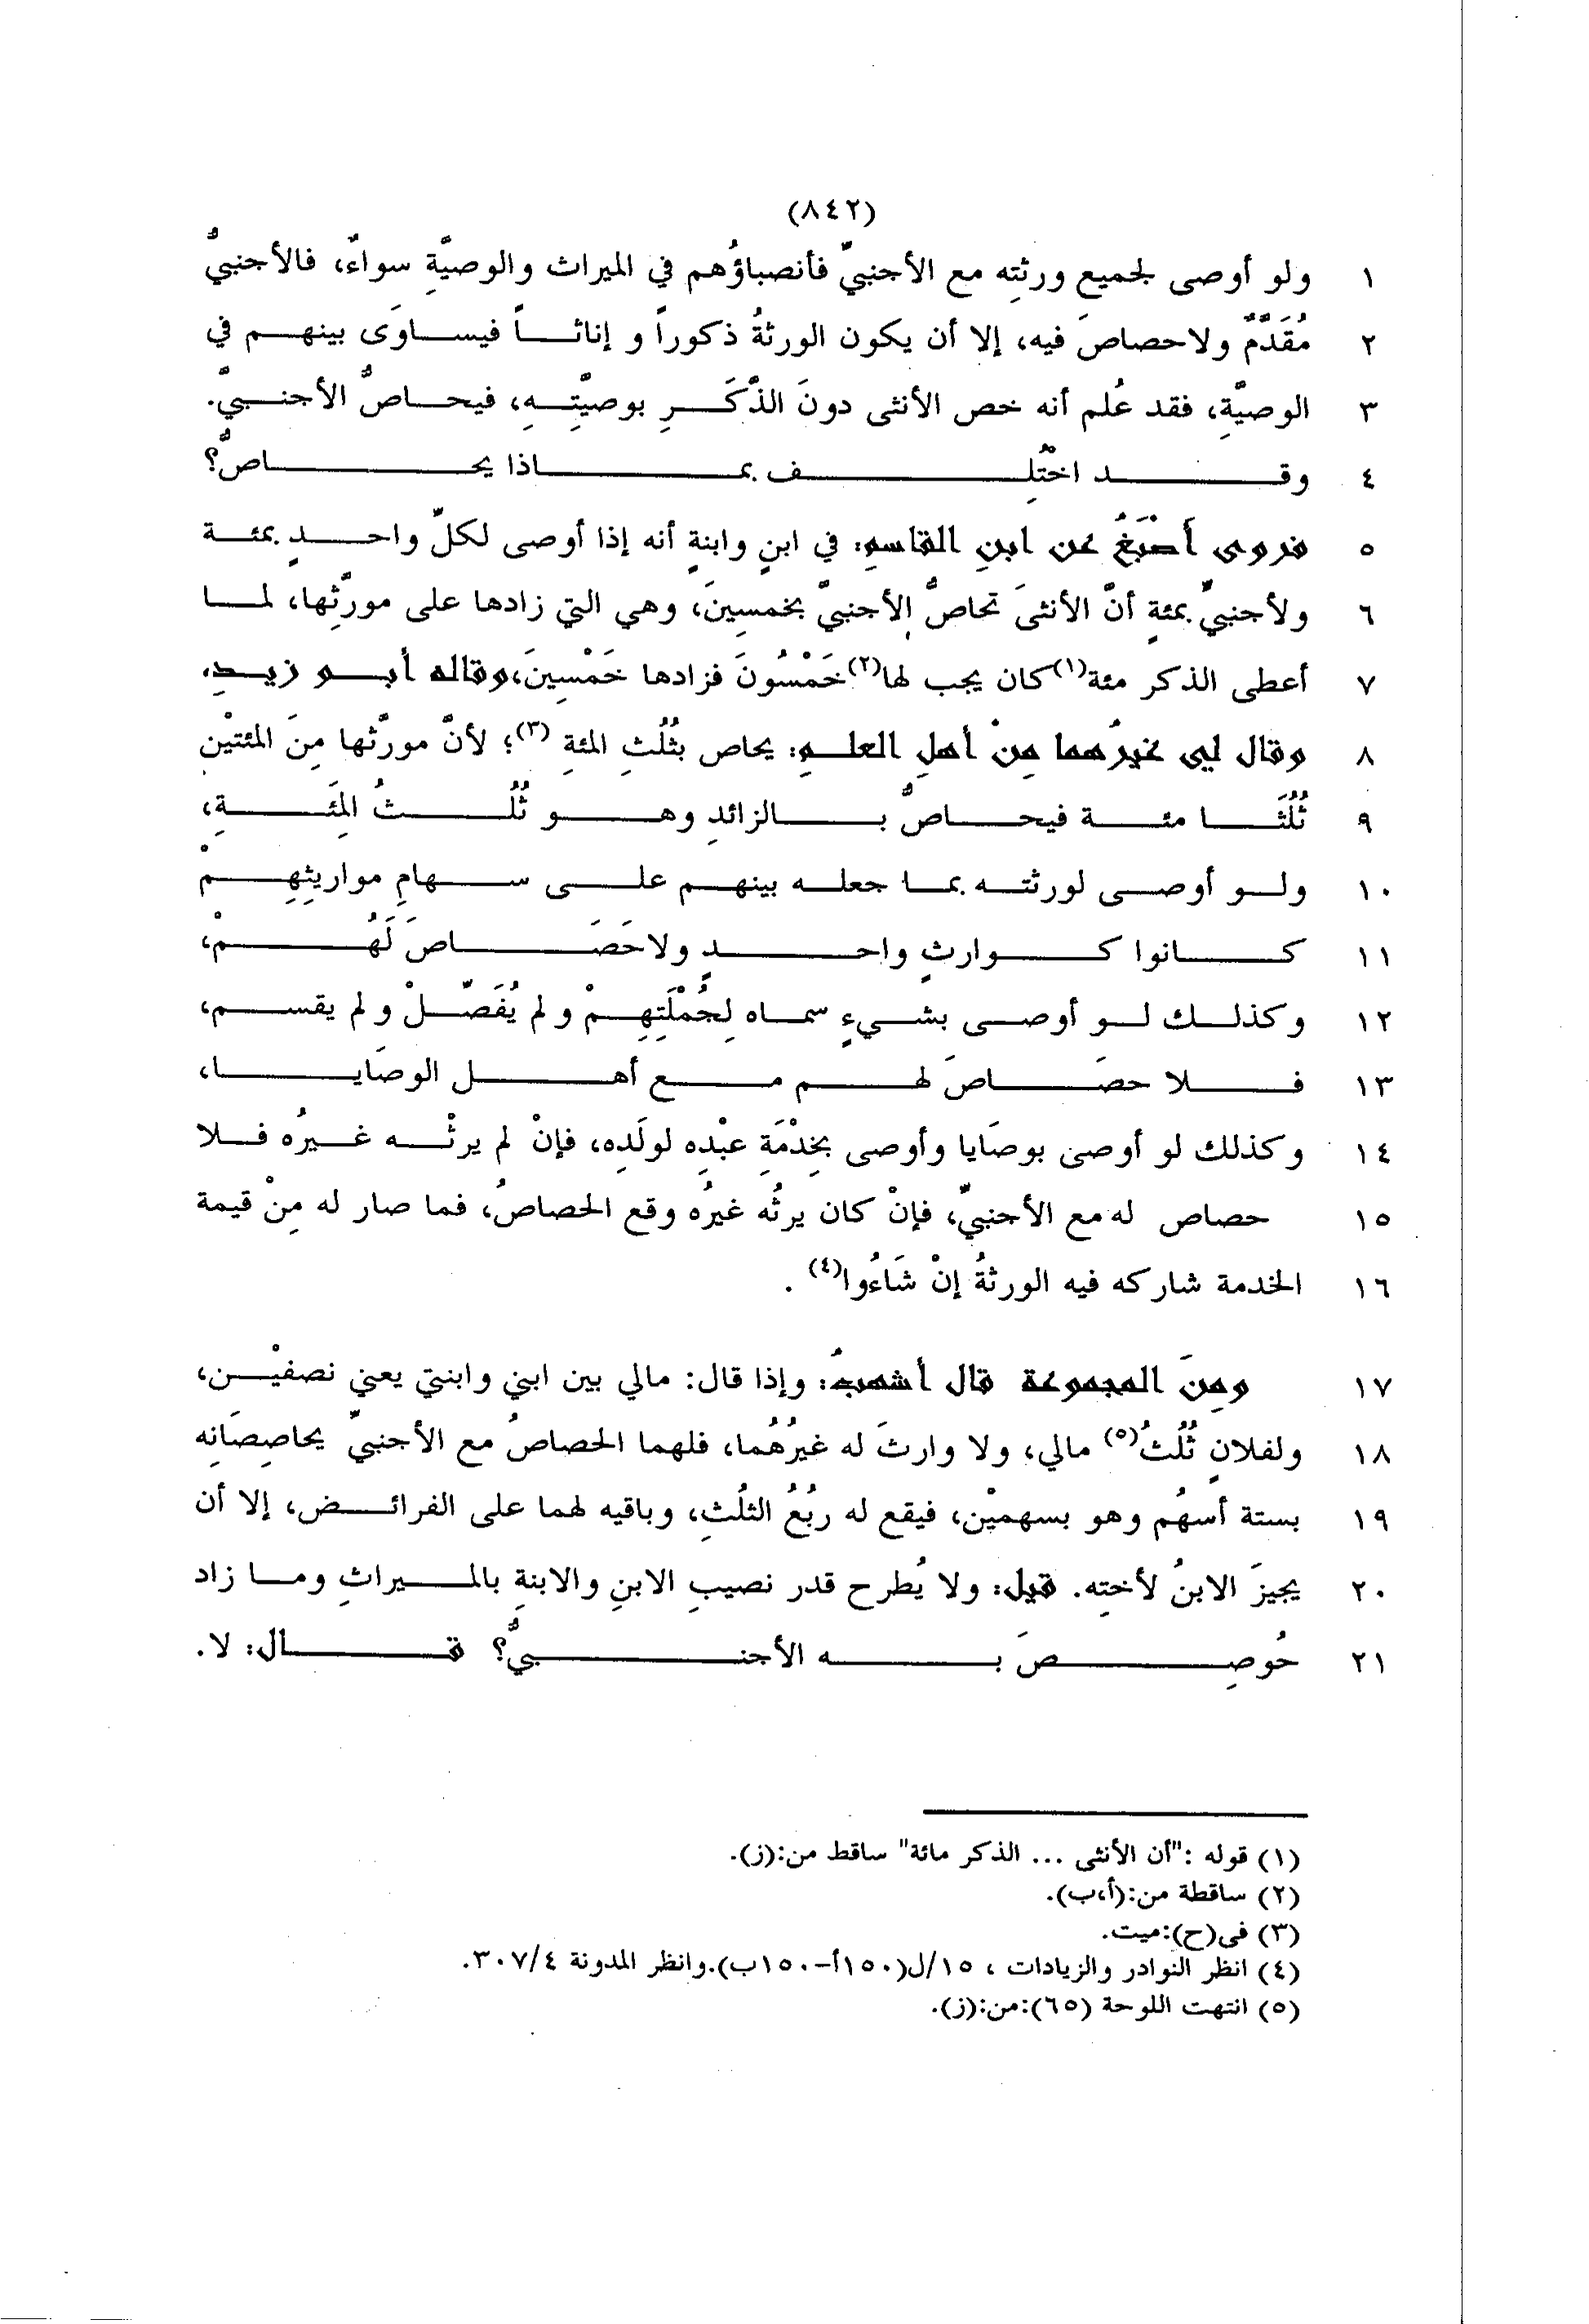 (٨٤٢)
١ ولو أوصى لجميع ورثتِه مع الأجنبيِّ فأنصباؤُهم في الميراث والوصيَّةِ سواءٌ، فالأجنبيُّ
٢ مُقَدَّمٌ ولاحصاصَ فيه، إلا أن يكون الورثةُ ذكوراً و إناثـاً فيسـاوَى بينهـم في
٣ الوصيَّةِ، فقد عُلم أنه خص الأنثى دونَ الذَّكَـرِ بوصيَّتِـهِ، فيحـاصُّ الأجنـبيَّ.
٤ وقـد اختُلِـف بمـاذا يحـاصُّ؟
٥ فروى أَصْبَغُ عن ابنِ القاسمِ: في ابنٍ وابنةٍ أنه إذا أوصى لكلِّ واحـدٍ بمئـة
٦ ولأجنبيٍّ بمئةٍ أنَّ الأنثىَ تحاصُّ الأجنبيَّ بخمسِينَ، وهي التي زادها على مورَّثِها، لمـا
٧ أعطى الذكر مئة(١)كان يجب لها(٢)خَمْسُونَ فزادها خَمْسِينَ،وقاله أبـو زيـدٍ،
٨ وقال لي غيرُهما مِنْ أهلِ العلـمِ: يحاص بثُلُثِ المئةِ (٣)؛ لأنَّ مورَّثها مِنَ المئتيْنِ
٩ ثُلُثَـا مئـة فيحـاصُّ بـالزائدِ وهـو ثُلُـثُ المِئَـةِ،
١٠ ولـو أوصـى لورثتـه بمـا جعلـه بينهـم علـى سـهامِ مواريثِهِـمْ
١١ كـانوا كـوارثٍ واحـدٍ ولاحَصَـاصَ لَهُـمْ،
١٢ وكذلـك لـو أوصـى بشـيءٍ سمـاه لِجُمْلَتِهِـمْ و لم يُفَصِّـلْ و لم يقسـم،
١٣ فـلا حصَـاصَ لهـم مـع أهـل الوصَايـا،
١٤ وكذلك لو أوصى بوصَايا وأوصى بخِدْمَةِ عبْدِه لولَدِه، فإنْ لم يرثْـه غـيرُه فـلا
١٥ حصاص له مع الأجنبيِّ، فإنْ كان يرثُه غيرُه وقع الحصاصُ، فما صار له مِنْ قيمة
١٦ الخدمة شاركه فيه الورثةُ إنْ شَاءُوا(٤) .
١٧ ومِنَ المجموعة قال أشهبُ: وإذا قال: مالي بين ابني وابنتي يعني نصفيْـن،
١٨ ولفلانٍ ثُلُثُ(٥) مالي، ولا وارثَ له غيرُهُما، فلهما الحصاصُ مع الأجنبيِّ يحاصِصَانِه
١٩ بستة أسهُم وهو بسهميْن، فيقع له ربُعُ الثلُثِ، وباقيه لهما على الفرائـض، إلا أن
٢٠ يجيزَ الابنُ لأختِه. قيل: ولا يُطرح قدر نصيبِ الابنِ والابنةِ بالمـيراثِ ومـا زاد
٢١ حُوصِـصَ بـه الأجنـبيُّ؟ قـال: لا.
(١) قوله :"أن الأنثى ... الذكر مائة" ساقط من:(ز).
(٢) ساقطة من:(أ،ب).
(٣) فى(ح):ميت.
(٤) انظر النوادر والزيادات ، ١٥/ل(١٥٠أ-١٥٠ب).وانظر المدونة ٣٠٧/٤.
(٥) انتهت اللوحة (٦٥):من:(ز).